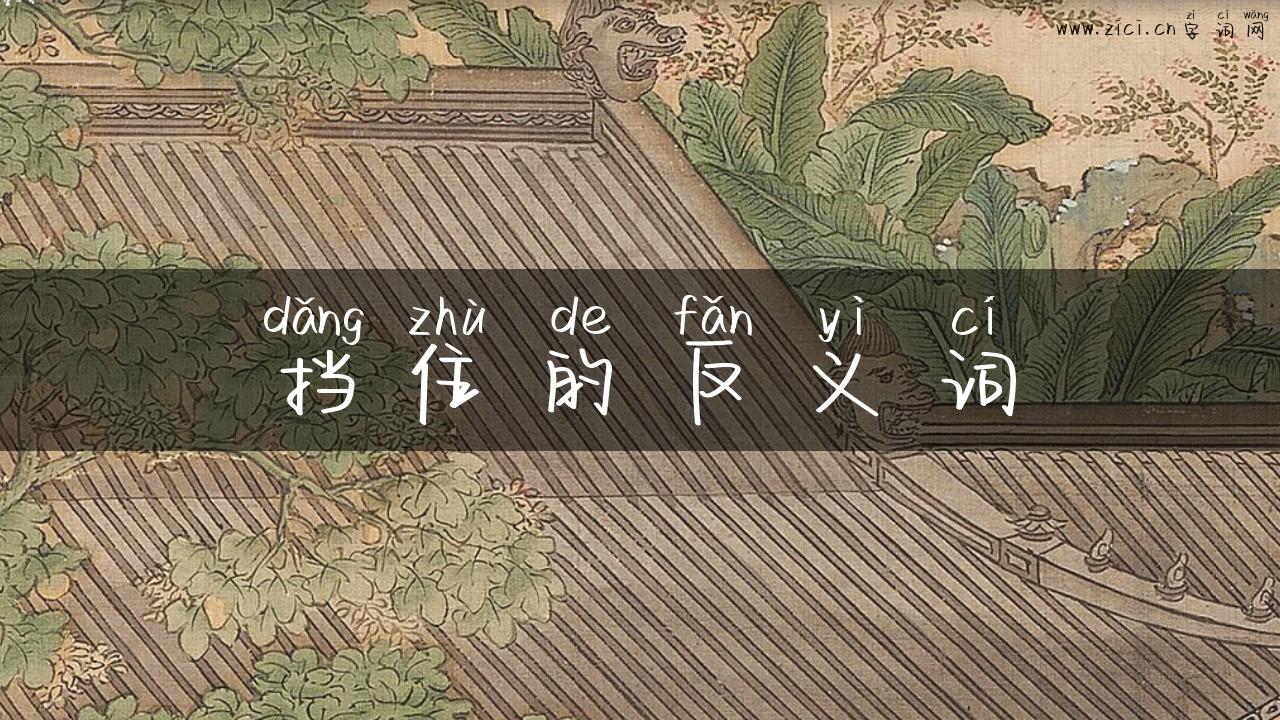 zì cí wǎng
www.zici.cn 字词网
dǎng zhù de fǎn yì cí
挡住的反义词